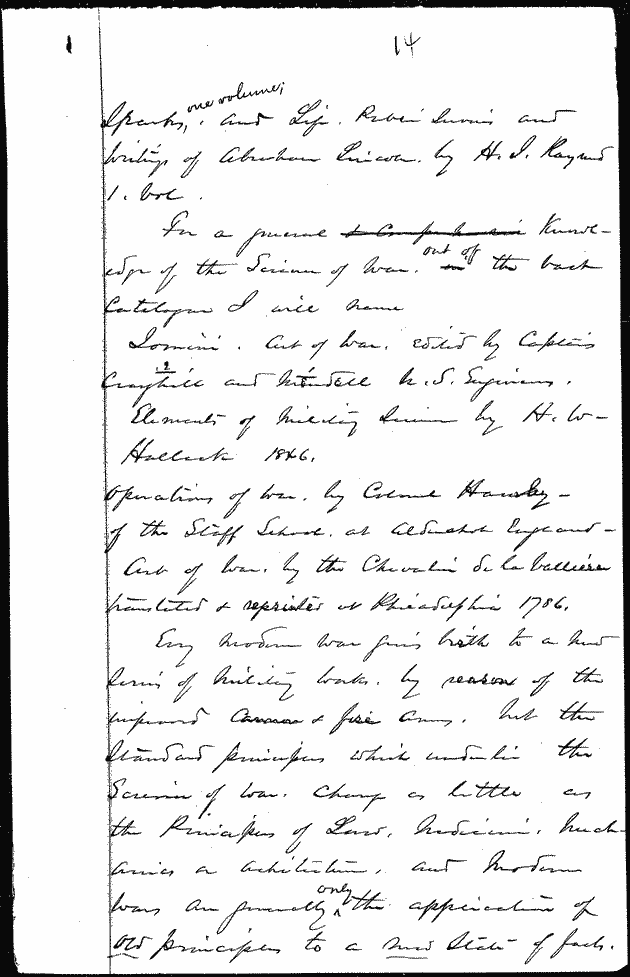 14
one volume;
Sparks, and Life. Public Services and
writings of Abraham Lincoln. by H. J. Raymond
1. vol.
For a general & comprehensive Knowl-
out of
edge of the Science of War. in the book
Catalogue I will name
Jomini. Art of War. edited by Captains
Craighill and Mendell U.S. Engineers.
Elements of Military Science by H. W-
Halleck 1846.
Operations of War. by Colonel Hamley-
of the Staff School. at Aldershot England-
Art of War. by the Chevalier de la Vallière
translated & reprinted at Philadelphia 1786.
Every modern war gives birth to a new
series of Military works. by reason of the
improved Cannon & fire arms. but the
Standard principles which underlie the
Science of War. Change as little as
the Principles of Law. Medicine. Mech-
anics or architecture. and modern
only
Wars are generally the application of
old principles to a new State of facts.